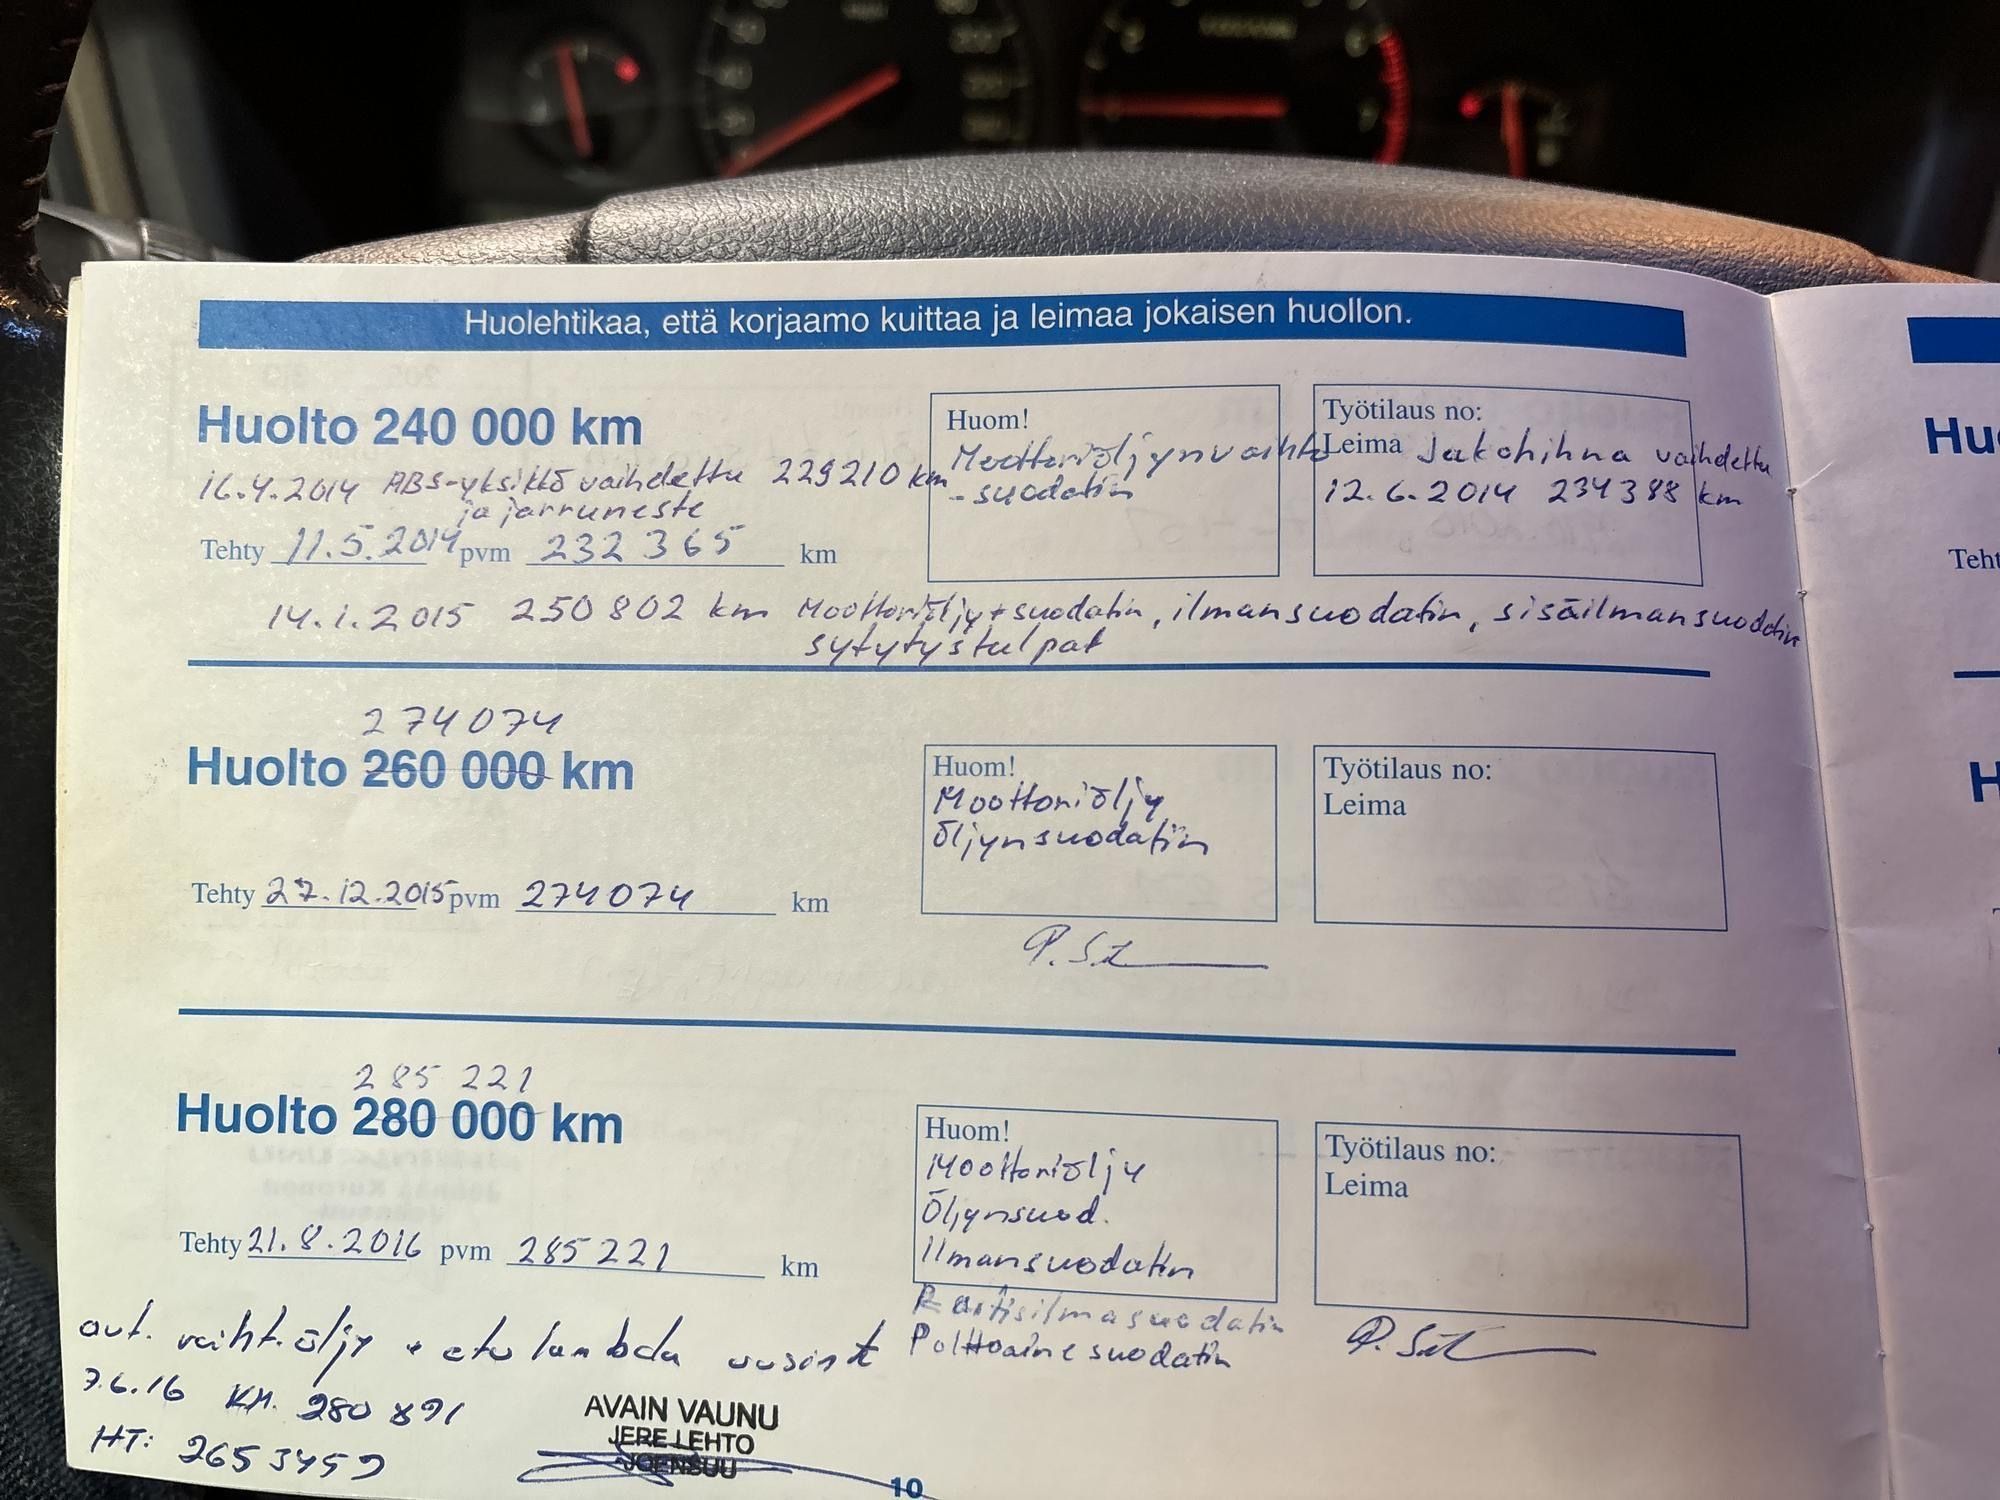 Huolehtikaa, että korjaamo kuittaa ja leimaa jokaisen huollon.
Huolto 240 000 km
16.4.2014 ABS-yksikkö vaihdettu 229210 km
ja jarruneste
Tehty 11.5.2014 pvm 232 365 km
Huom!
Moottoriöljynvaihto
-suodatin
Työtilaus no:
Leima Jakohihna vaihdettu
12.6.2014 234388 km
14.1.2015 250802 km Moottoriöljy+suodatin, ilmansuodatin, sisäilmansuodatin
sytytystulpat
274074
Huolto 260 000 km
Tehty 27.12.2015 pvm 274074 km
Huom!
Moottoriöljy
öljynsuodatin
Työtilaus no:
Leima
285 221
Huolto 280 000 km
Tehty 21.8.2016 pvm 285221 km
Huom!
Moottoriöljy
Öljynsuod.
Ilmansuodatin
Raitisilmasuodatin
Polttoainesuodatin
Työtilaus no:
Leima
aut. vaiht.öljy + etu lambda uusint
7.6.16 KM. 280 891
HT: 2653459
AVAIN VAUNU
JERE LEHTO
JOENSUU
10
Hu
Teht
H